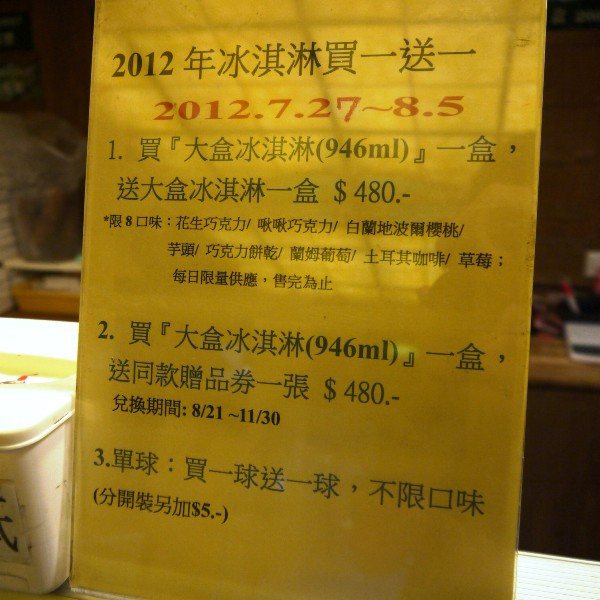 2012 年冰淇淋買一送一
2012.7.27~8.5
1. 買『大盒冰淇淋(946ml)』一盒，
送大盒冰淇淋一盒 $ 480.-
*限 8 口味：花生巧克力/ 啾啾巧克力/ 白蘭地波爾櫻桃/
芋頭/ 巧克力餅乾/ 蘭姆葡萄/ 土耳其咖啡/ 草莓；
每日限量供應，售完為止
2. 買『大盒冰淇淋(946ml)』一盒，
送同款贈品券一張 $ 480.-
兌換期間: 8/21 ~11/30
3.單球：買一球送一球，不限口味
(分開裝另加$5.-)